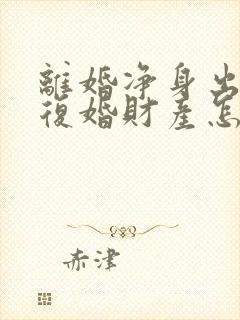 離婚净身出
復婚財產怎
赤津